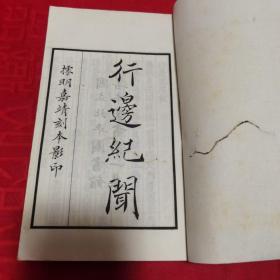 行邊紀聞
據明嘉靖刻本影印